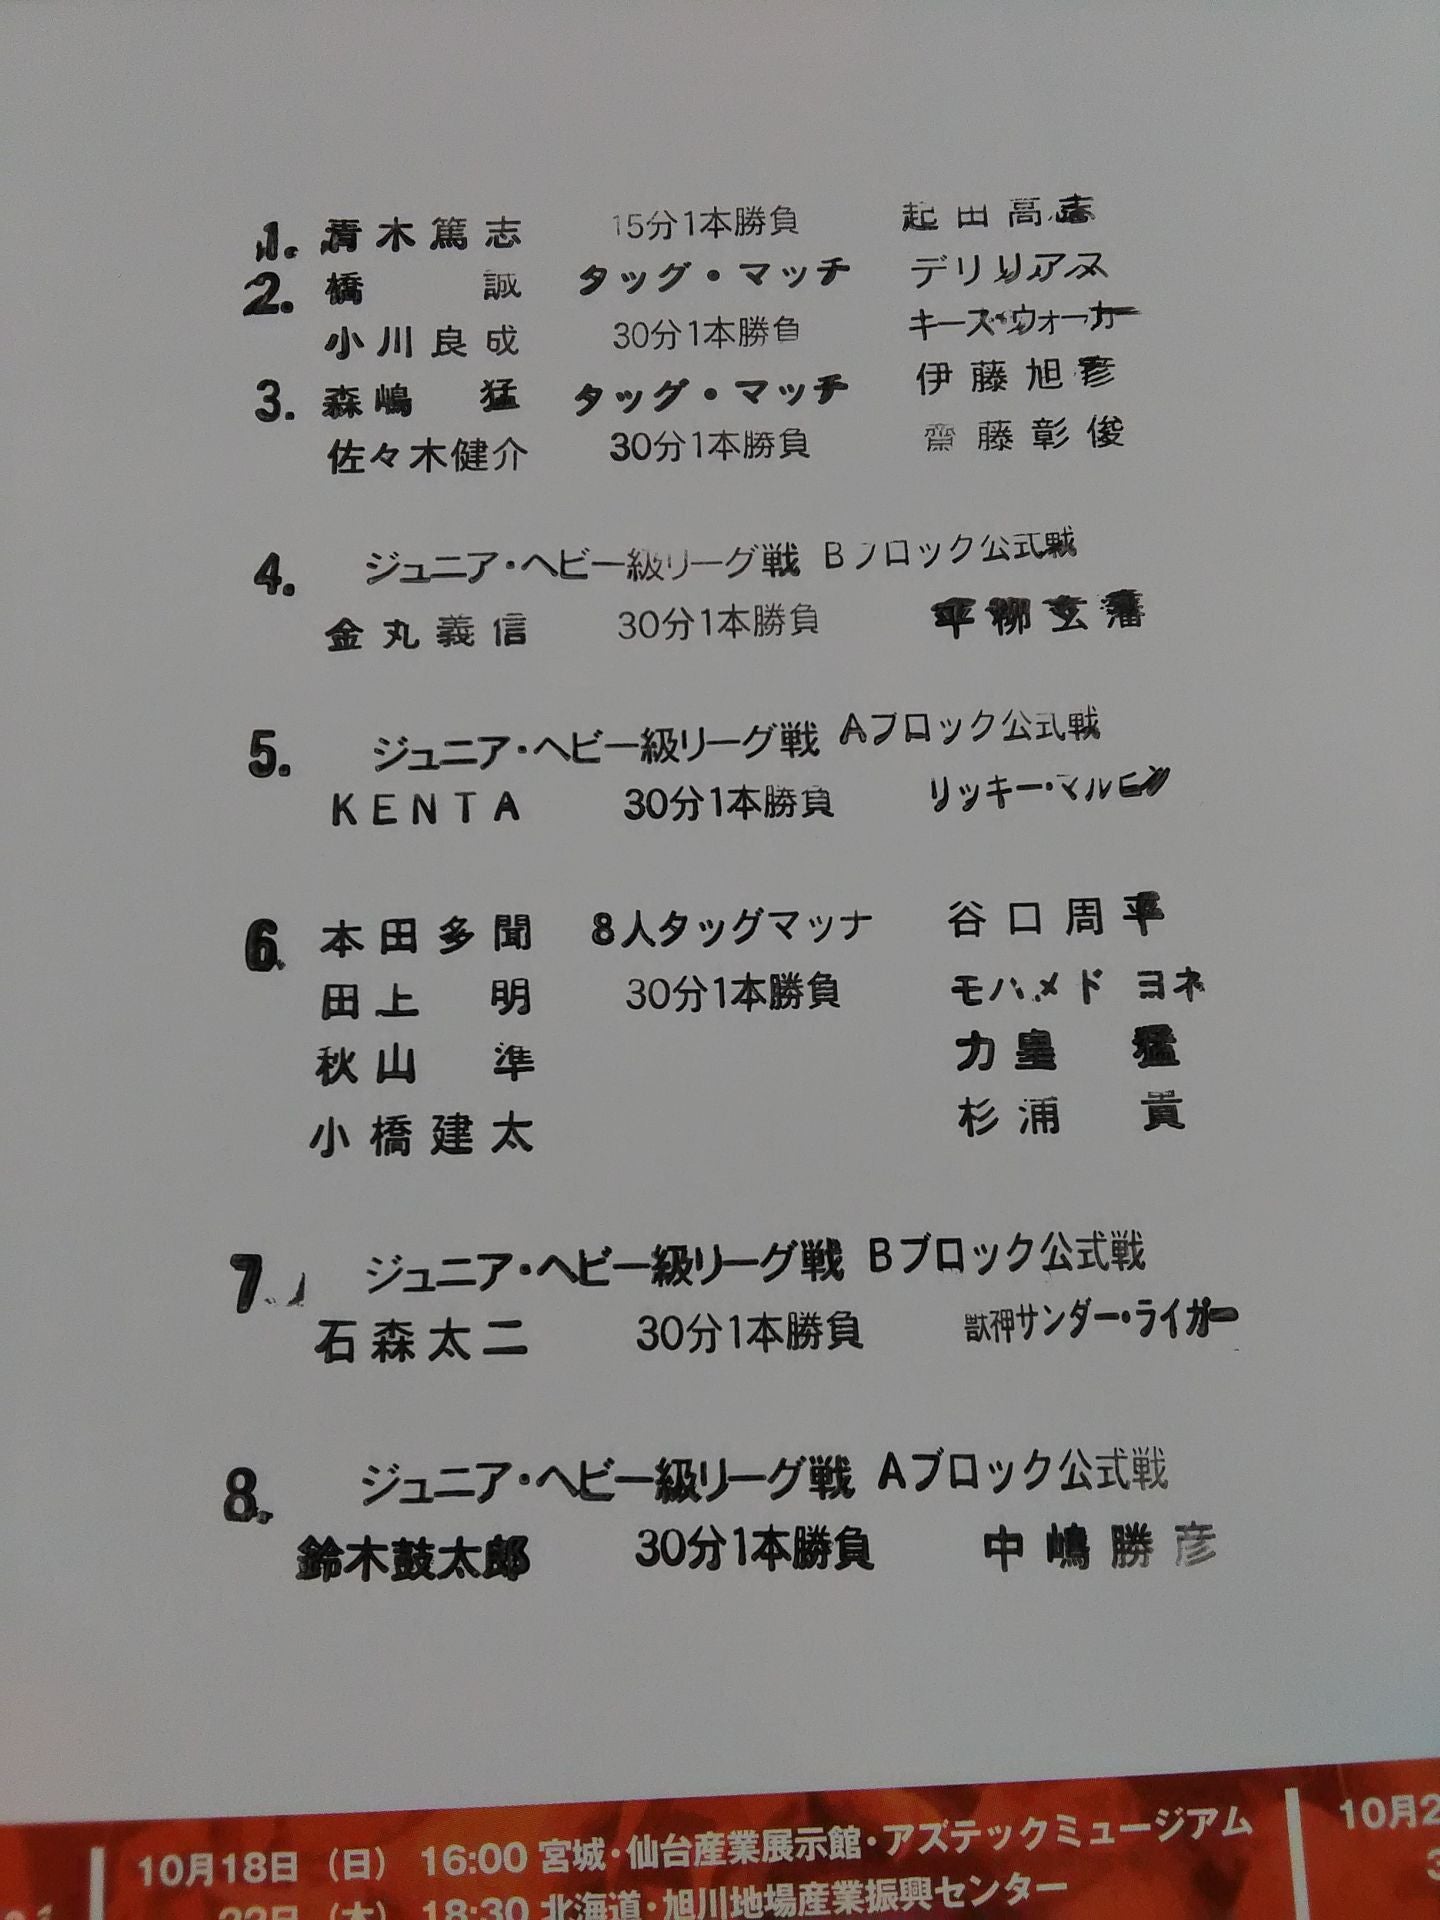 1. 青木篤志 15分1本勝負 起田高志
2. 橋 誠 タッグ・マッチ デリリアス
小川良成 30分1本勝負 キース・ウォーカー
3. 森嶋 猛 タッグ・マッチ 伊藤旭彦
佐々木健介 30分1本勝負 齋藤彰俊
4. ジュニア・ヘビー級リーグ戦 Bブロック公式戦
金丸義信 30分1本勝負 平柳玄藩
5. ジュニア・ヘビー級リーグ戦 Aブロック公式戦
KENTA 30分1本勝負 リッキー・マルビン
6. 本田多聞 8人タッグマッチ 谷口周平
田上 明 30分1本勝負 モハメド ヨネ
秋山 準 力皇 猛
小橋建太 杉浦 貴
7. ジュニア・ヘビー級リーグ戦 Bブロック公式戦
石森太二 30分1本勝負 獣神サンダー・ライガー
8. ジュニア・ヘビー級リーグ戦 Aブロック公式戦
鈴木鼓太郎 30分1本勝負 中嶋勝彦
10月18日（日） 16:00 宮城・仙台産業展示館・アズテックミュージアム
22日（木） 18:30 北海道・旭川地場産業振興センター
10月2